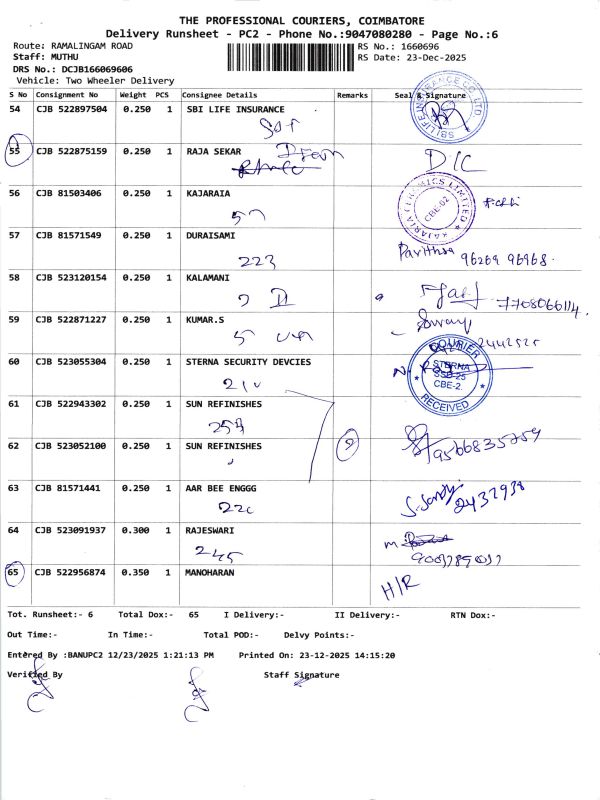 THE PROFESSIONAL COURIERS, COIMBATORE
Delivery Runsheet - PC2 - Phone No.:9047080280 - Page No.:6
Route: RAMALINGAM ROAD
RS No.: 1660696
Staff: MUTHU
RS Date: 23-Dec-2025
DRS No.: DCJB166069606
Vehicle: Two Wheeler Delivery
S No Consignment No Weight PCS Consignee Details Remarks Seal & Signature
54 CJB 522897504 0.250 1 SBI LIFE INSURANCE
SBI LIFE INSURANCE CO. LTD
55 CJB 522875159 0.250 1 RAJA SEKAR
D/C
56 CJB 81503406 0.250 1 KAJARAIA
CBE-02
57 CJB 81571549 0.250 1 DURAISAMI
223
Pavithra 96269 96968
58 CJB 523120154 0.250 1 KALAMANI
7708066114
59 CJB 522871227 0.250 1 KUMAR.S
2442525
60 CJB 523055304 0.250 1 STERNA SECURITY DEVCIES
COURIER
STERNA
SSD-25
CBE-2
RECEIVED
61 CJB 522943302 0.250 1 SUN REFINISHES
62 CJB 523052100 0.250 1 SUN REFINISHES
9566835259
63 CJB 81571441 0.250 1 AAR BEE ENGGG
220
2432938
64 CJB 523091937 0.300 1 RAJESWARI
245
65 CJB 522956874 0.350 1 MANOHARAN
H/R
Tot. Runsheet:- 6 Total Dox:- 65 I Delivery:- II Delivery:- RTN Dox:-
Out Time:- In Time:- Total POD:- Delvy Points:-
Entered By :BANUPC2 12/23/2025 1:21:13 PM Printed On: 23-12-2025 14:15:20
Verified By Staff Signature